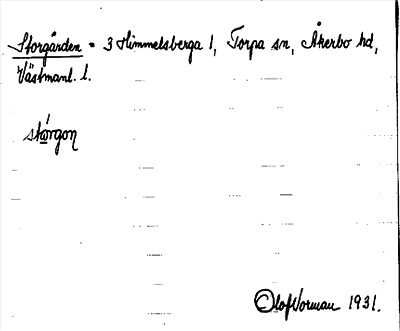 Storgården = 3 Himmelsberga 1, Torpa sn, Åkerbo hd,
Västmanl. l.
stórgon
Olof Norman 1931.